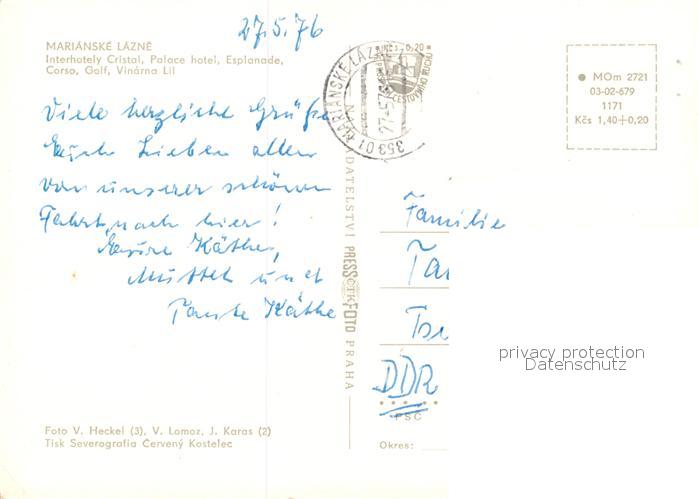 27.5.76
MARIÁNSKÉ LÁZNĚ
Interhotely Cristal, Palace hotel, Esplanade,
Corso, Golf, Vinárna Lil
Viele herzliche Grüße
Euch Lieben allen
von unserer schönen
Fahrt nach hier!
Eure Käthe,
Mutter und
Tante Käthe
Foto V. Heckel (3), V. Lomoz, J. Karas (2)
Tisk Severografia Červený Kostelec
353 01 MARIÁNSKÉ LÁZNĚ
CESTOVNÍHO RUCHU
VYDAVATELSTVÍ PRESSFOTO PRAHA
ČTK
MOm 2721
03-02-679
1171
Kčs 1,40+0,20
Familie
DDR
PSČ
Okres:
privacy protection
Datenschutz